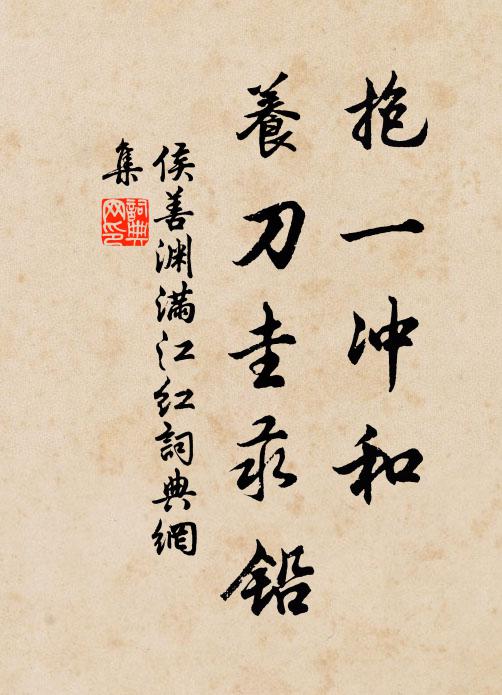 抱一冲和
養刀圭汞鉛
侯善渊满江红詞典網
集
詞典网印